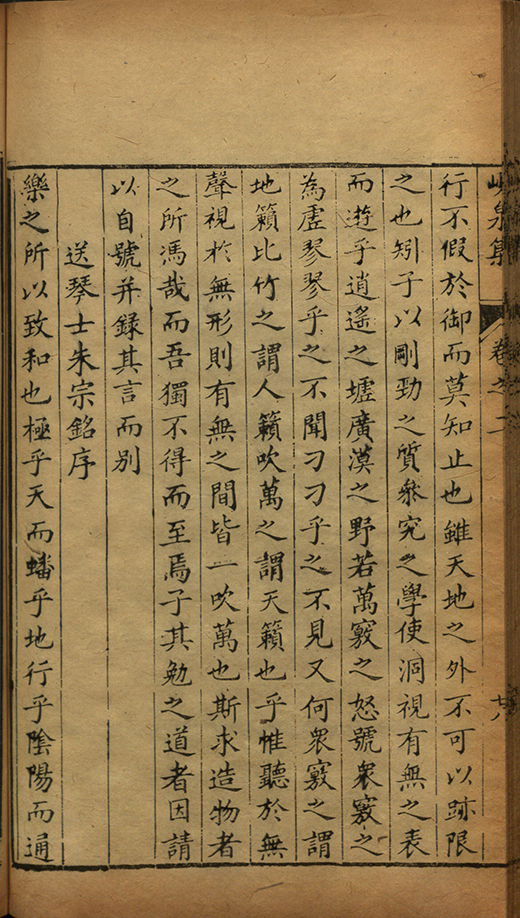 峴泉集
卷之二
行不假於御而莫知止也雖天地之外不可以跡限
之也矧子以剛勁之質叅究之學使洞視有無之表
而遊乎逍遙之墟廣漠之野若萬竅之怒號衆竅之
為虛翏翏乎之不聞刁刁乎之不見又何衆竅之謂
地籟比竹之謂人籟吹萬之謂天籟也乎惟聽於無
聲視於無形則有無之間皆一吹萬也斯求造物者
之所馮哉而吾獨不得而至焉子其勉之道者因請
以自號并録其言而别
送琴士朱宗銘序
樂之所以致和也極乎天而蟠乎地行乎陰陽而通